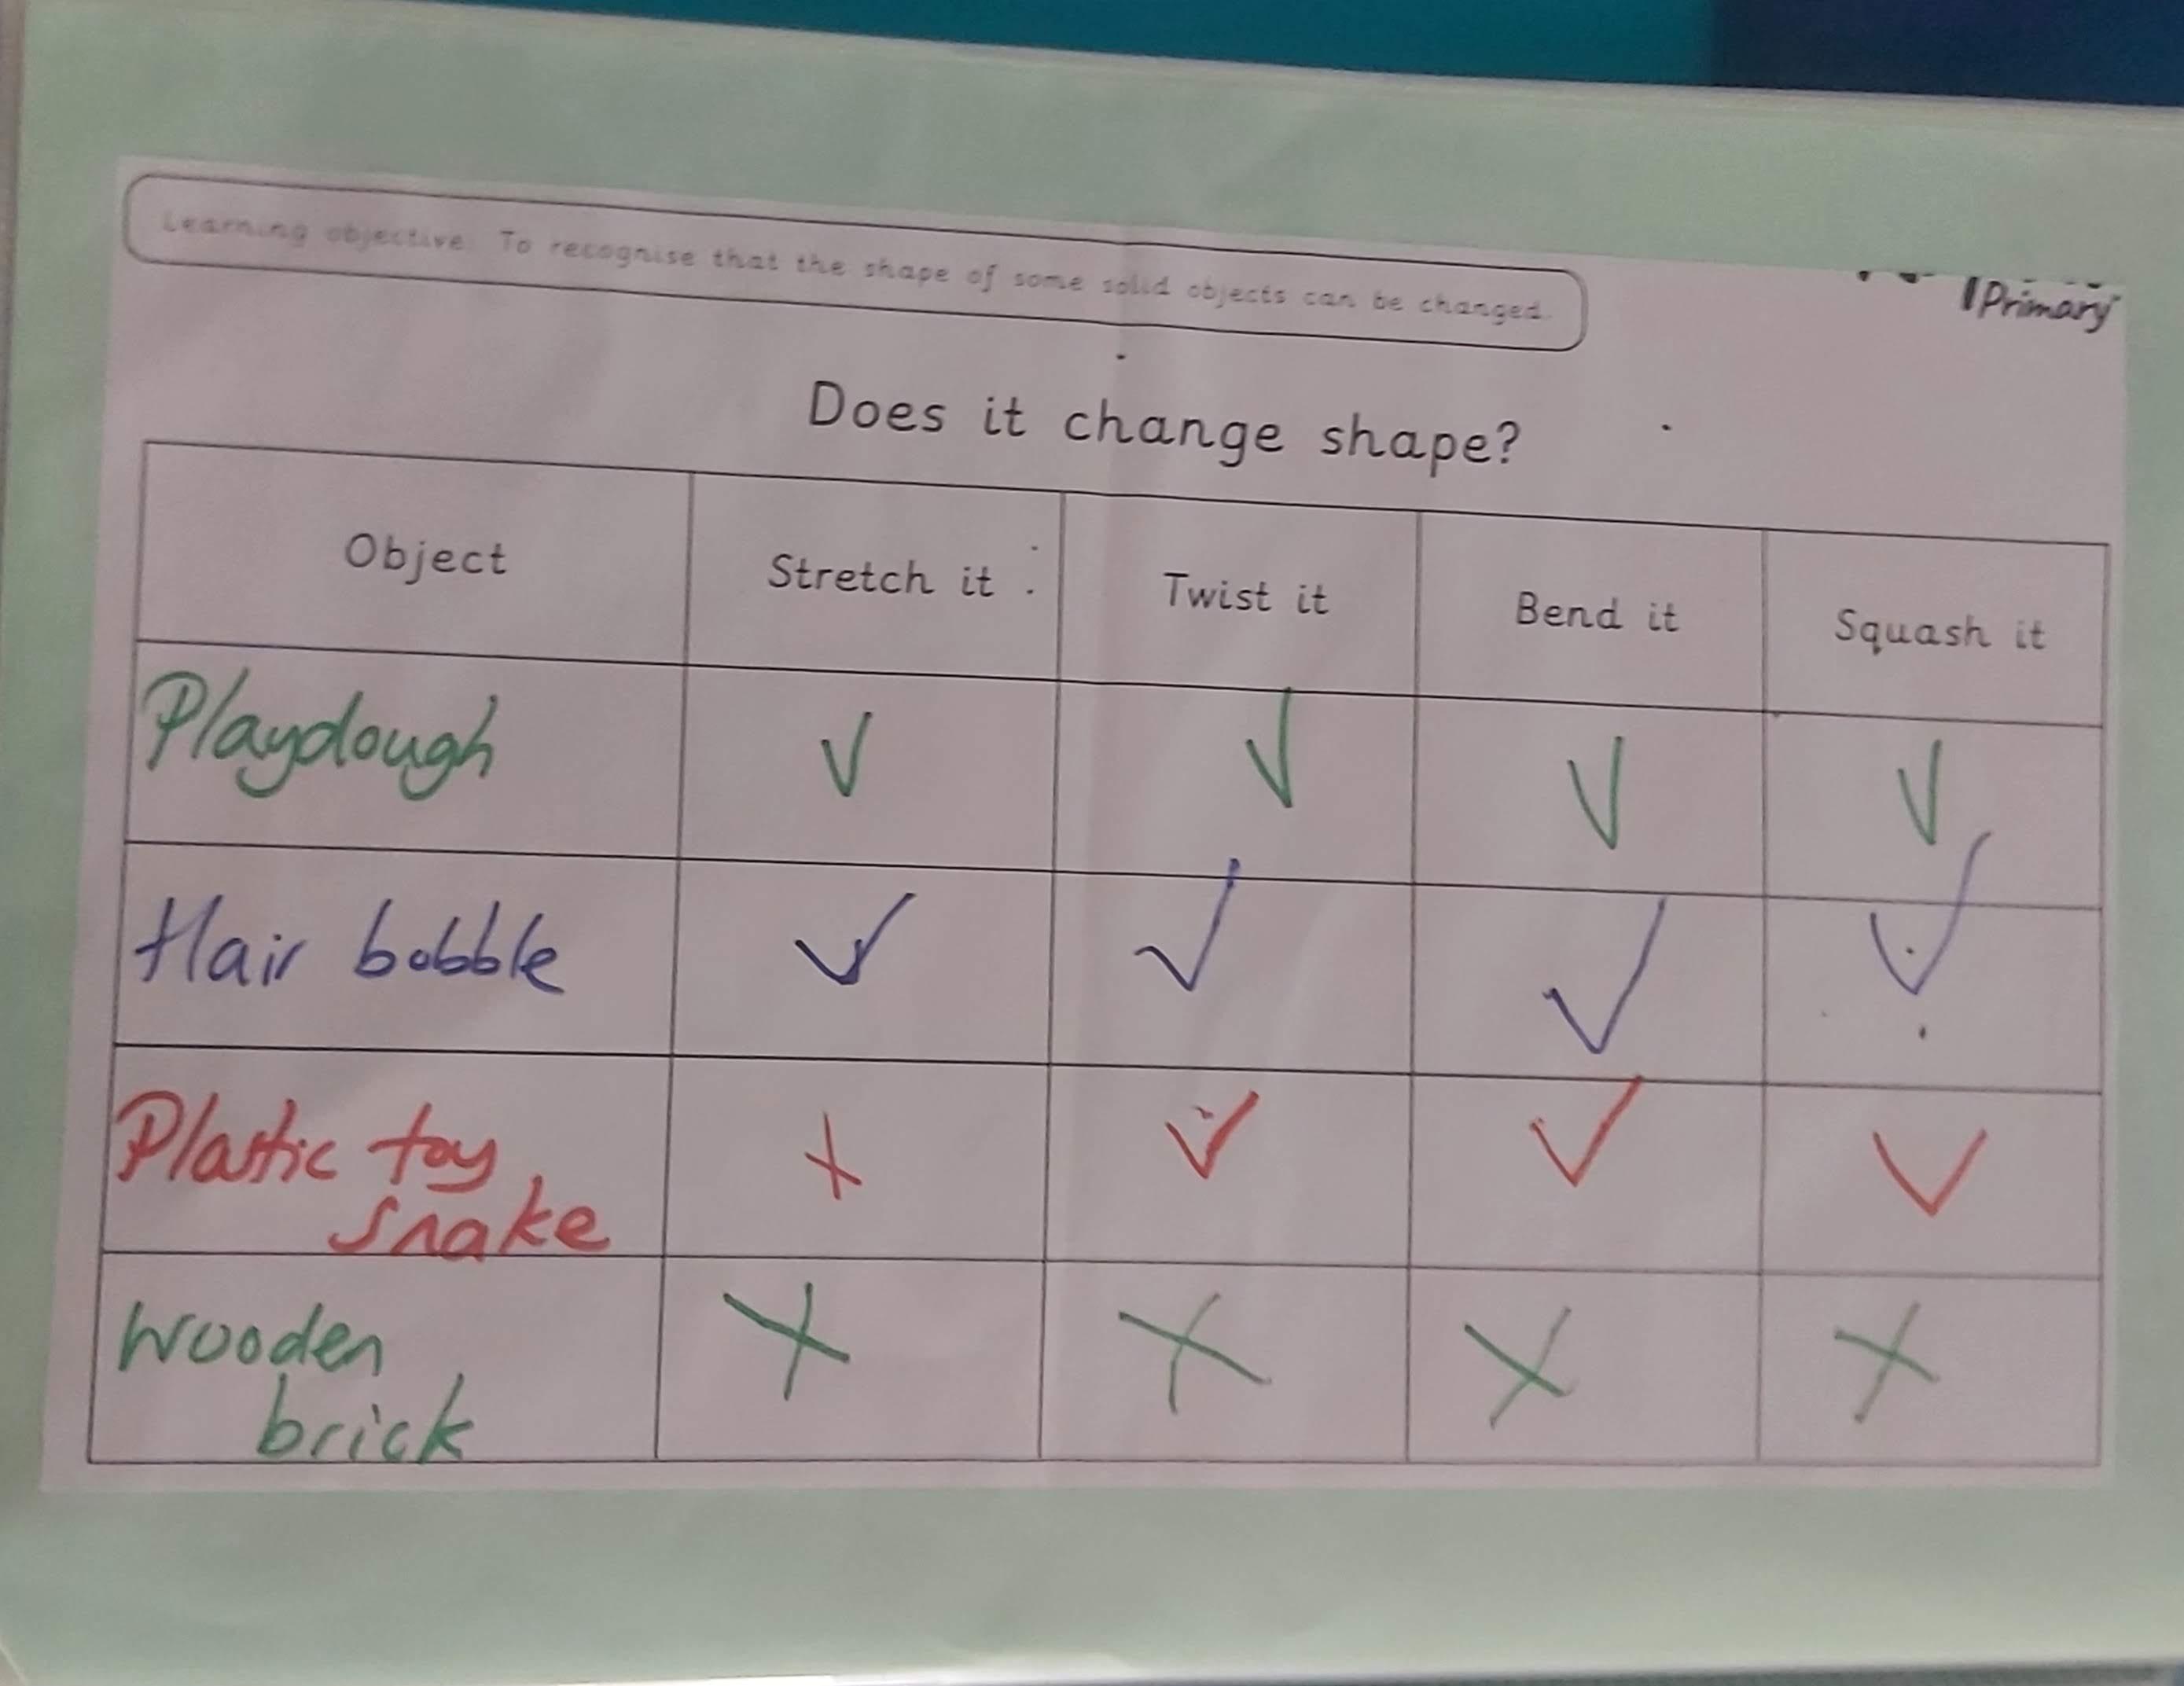 Learning objective: To recognise that the shape of some solid objects can be changed.
Primary
Does it change shape?
Object Stretch it Twist it Bend it Squash it
Playdough ✓ ✓ ✓ ✓
Hair bobble ✓ ✓ ✓ ✓
Plastic toy
snake ✗ ✓ ✓ ✓
Wooden
brick ✗ ✗ ✗ ✗